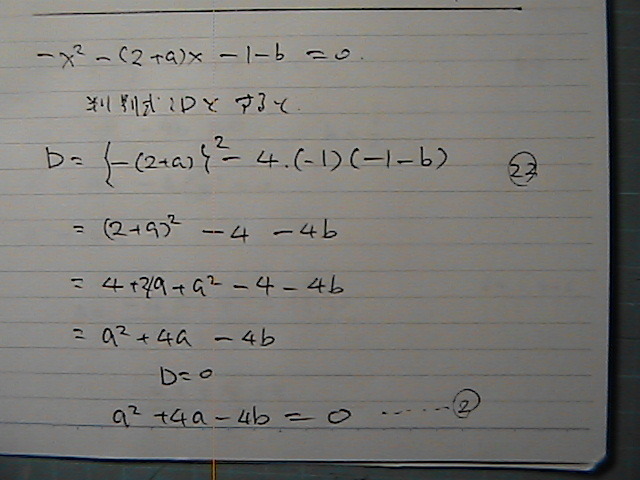 -x² - (2+a)x - 1 - b = 0.
判別式をDとすると
D = {-(2+a)}² - 4·(-1)(-1-b) ㉒
= (2+a)² - 4 - 4b
= 4 + 4a + a² - 4 - 4b
= a² + 4a - 4b
D = 0
a² + 4a - 4b = 0 ……②